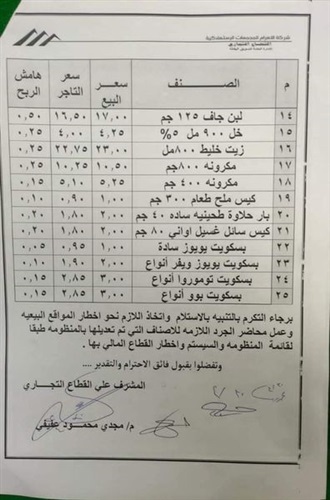 شركة الأهرام للمجمعات الإستهلاكية
القطاع التجارى
م الصنف سعر البيع سعر التاجر هامش الربح
١٤ لبن جاف ١٢٥ جم ١٧,٠٠ ١٦,٥٠ ٠,٥٠
١٥ خل ٩٠٠ مل ٥% ٤,٢٥ ٤,٠٠ ٠,٢٥
١٦ زيت خليط ٨٠٠مل ٢٣,٠٠ ٢٢,٧٥ ٠,٢٥
١٧ مكرونه ٨٠٠جم ١٠,٥٠ ١٠,٢٥ ٠,٢٥
١٨ مكرونه ٤٠٠ جم ٥,٢٥ ٥,١٠ ٠,١٥
١٩ كيس ملح طعام ٣٠٠ جم ١,٠٠ ٠,٩٠ ٠,١٠
٢٠ بار حلاوة طحينيه ساده ٤٠ جم ٢,٠٠ ١,٨٠ ٠,٢٠
٢١ كيس سائل غسيل اوانى ٨٠ جم ٢,٠٠ ١,٨٠ ٠,٢٠
٢٢ بسكويت يويوز سادة ١,٠٠ ٠,٩٥ ٠,٠٥
٢٣ بسكويت يويوز ويفر أنواع ٢,٠٠ ١,٩٠ ٠,١٠
٢٤ بسكويت توموروا أنواع ٣,٠٠ ٢,٨٥ ٠,١٥
٢٥ بسكويت بوو أنواع ٣,٠٠ ٢,٨٥ ٠,١٥
برجاء التكرم بالتنبيه بالاستلام واتخاذ اللازم نحو اخطار المواقع البيعيه
وعمل محاضر الجرد اللازمه للأصناف التي تم تعديلها بالمنظومه طبقا
لقائمة المنظومه والسيستم واخطار القطاع المالي بها .
وتفضلوا بقبول فائق الاحترام والتقدير .....
المشرف علي القطاع التجاري
م/ مجدي محمود عفيفي